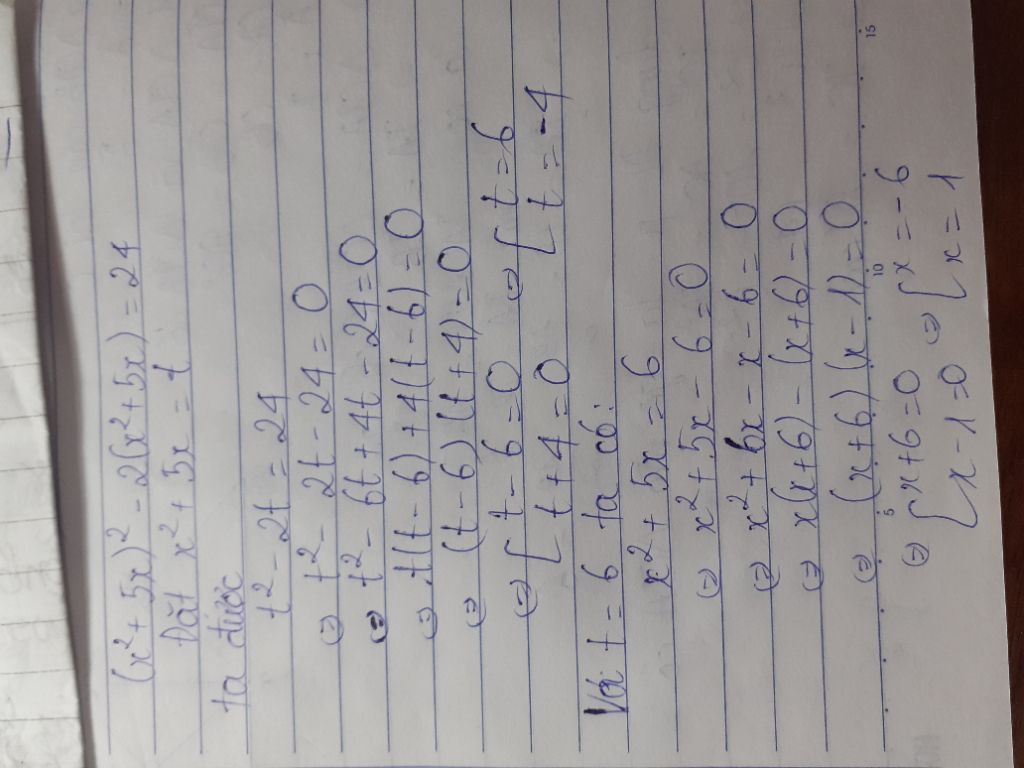 (x² + 5x)² - 2(x² + 5x) = 24
Đặt x² + 5x = t
ta được
t² - 2t = 24
⇔ t² - 2t - 24 = 0
⇔ t² - 6t + 4t - 24 = 0
⇔ t(t - 6) + 4(t - 6) = 0
⇔ (t - 6)(t + 4) = 0
⇔ [ t - 6 = 0 ⇔ [ t = 6
[ t + 4 = 0 [ t = -4
Với t = 6 ta có:
x² + 5x = 6
⇔ x² + 5x - 6 = 0
⇔ x² + 6x - x - 6 = 0
⇔ x(x + 6) - (x + 6) = 0
⇔ (x + 6)(x - 1) = 0
5 10 15
⇔ [ x + 6 = 0 ⇔ [ x = -6
[ x - 1 = 0 [ x = 1